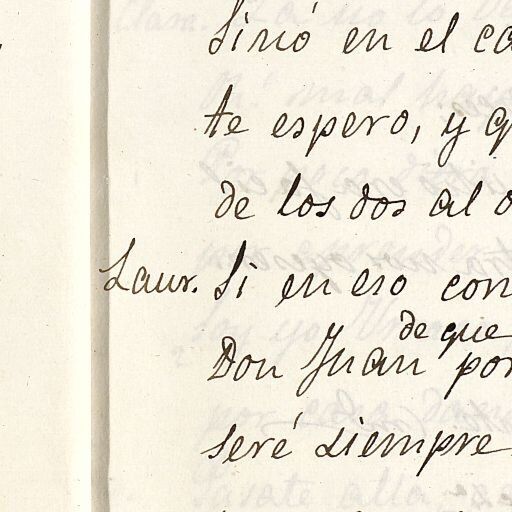 Sinó en el ca
te espero, y q
de los dos al o
Laur. Si en eso con
de que
Don Juan por
seré siempre